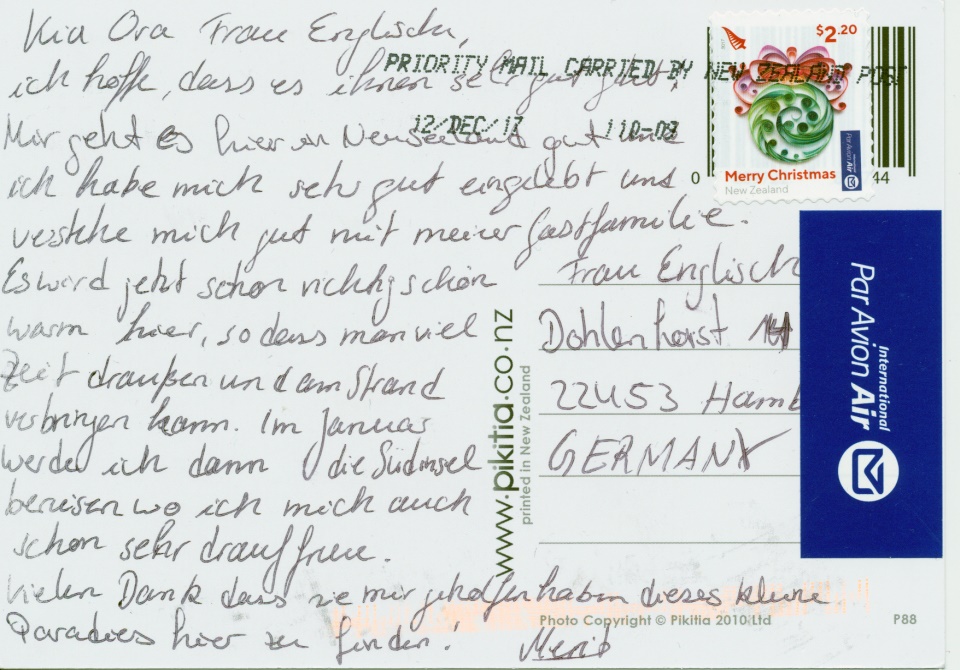 Kia Ora Frau Englisch,
ich hoffe, dass es ihnen sehr gut geht!
Mir geht es hier in Neuseeland gut und
ich habe mich sehr gut eingelebt und
verstehe mich gut mit meiner Gastfamilie.
Es wird jetzt schon richtig schön
warm hier, so dass man viel
Zeit draußen und am Strand
verbringen kann. Im Januar
werde ich dann die Südinsel
bereisen wo ich mich auch
schon sehr drauf freue.
Vielen Dank dass sie mir geholfen haben dieses kleine
Paradies hier zu finden!
Merit
PRIORITY MAIL CARRIED BY NEW ZEALAND POST
12/DEC/17
$2.20
Merry Christmas
New Zealand
Par Avion Air
0
44
Frau Englisch
Dohlenhorst
22453 Hamb
GERMANY
International
Par Avion Air
www.pikitia.co.nz
printed in New Zealand
Photo Copyright © Pikitia 2010 Ltd
P88